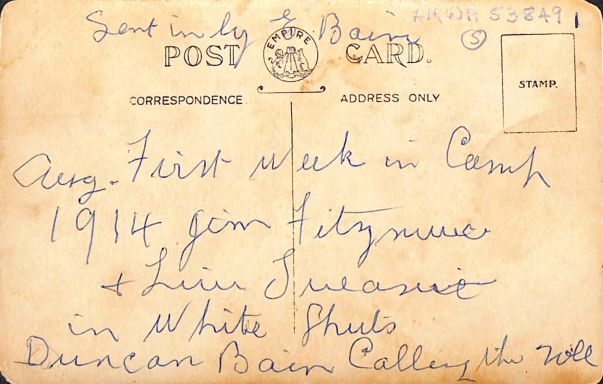 Sent in by E Bain
AMWA 53849 1
(5)
POST CARD.
EMPIRE
STAMP.
CORRESPONDENCE. ADDRESS ONLY
Aug. First Week in Camp
1914 Jim
+
in White Shuts
Duncan Bain Calling the Roll